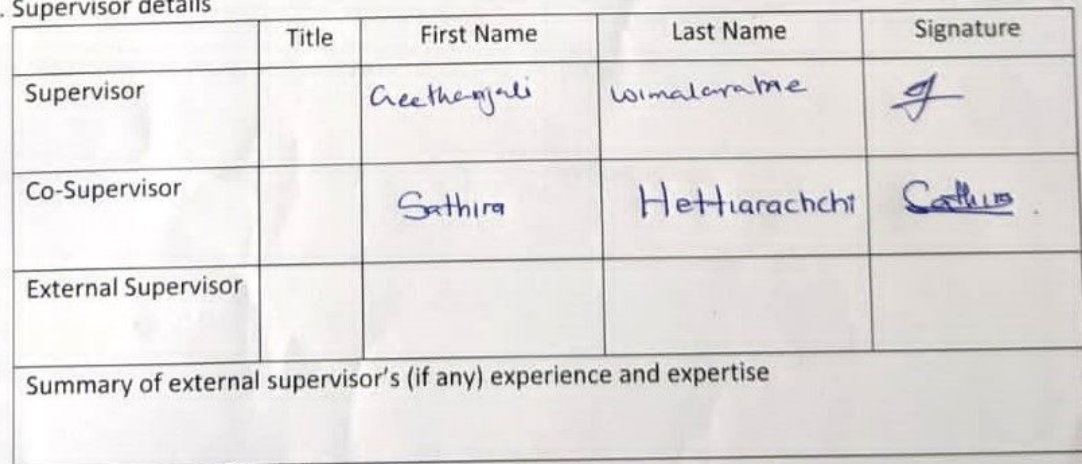 . Supervisor details
Title First Name Last Name Signature
Supervisor Geethanjali Wimalaratne
Co-Supervisor Sathira Hettiarachchi Sathira
External Supervisor
Summary of external supervisor's (if any) experience and expertise